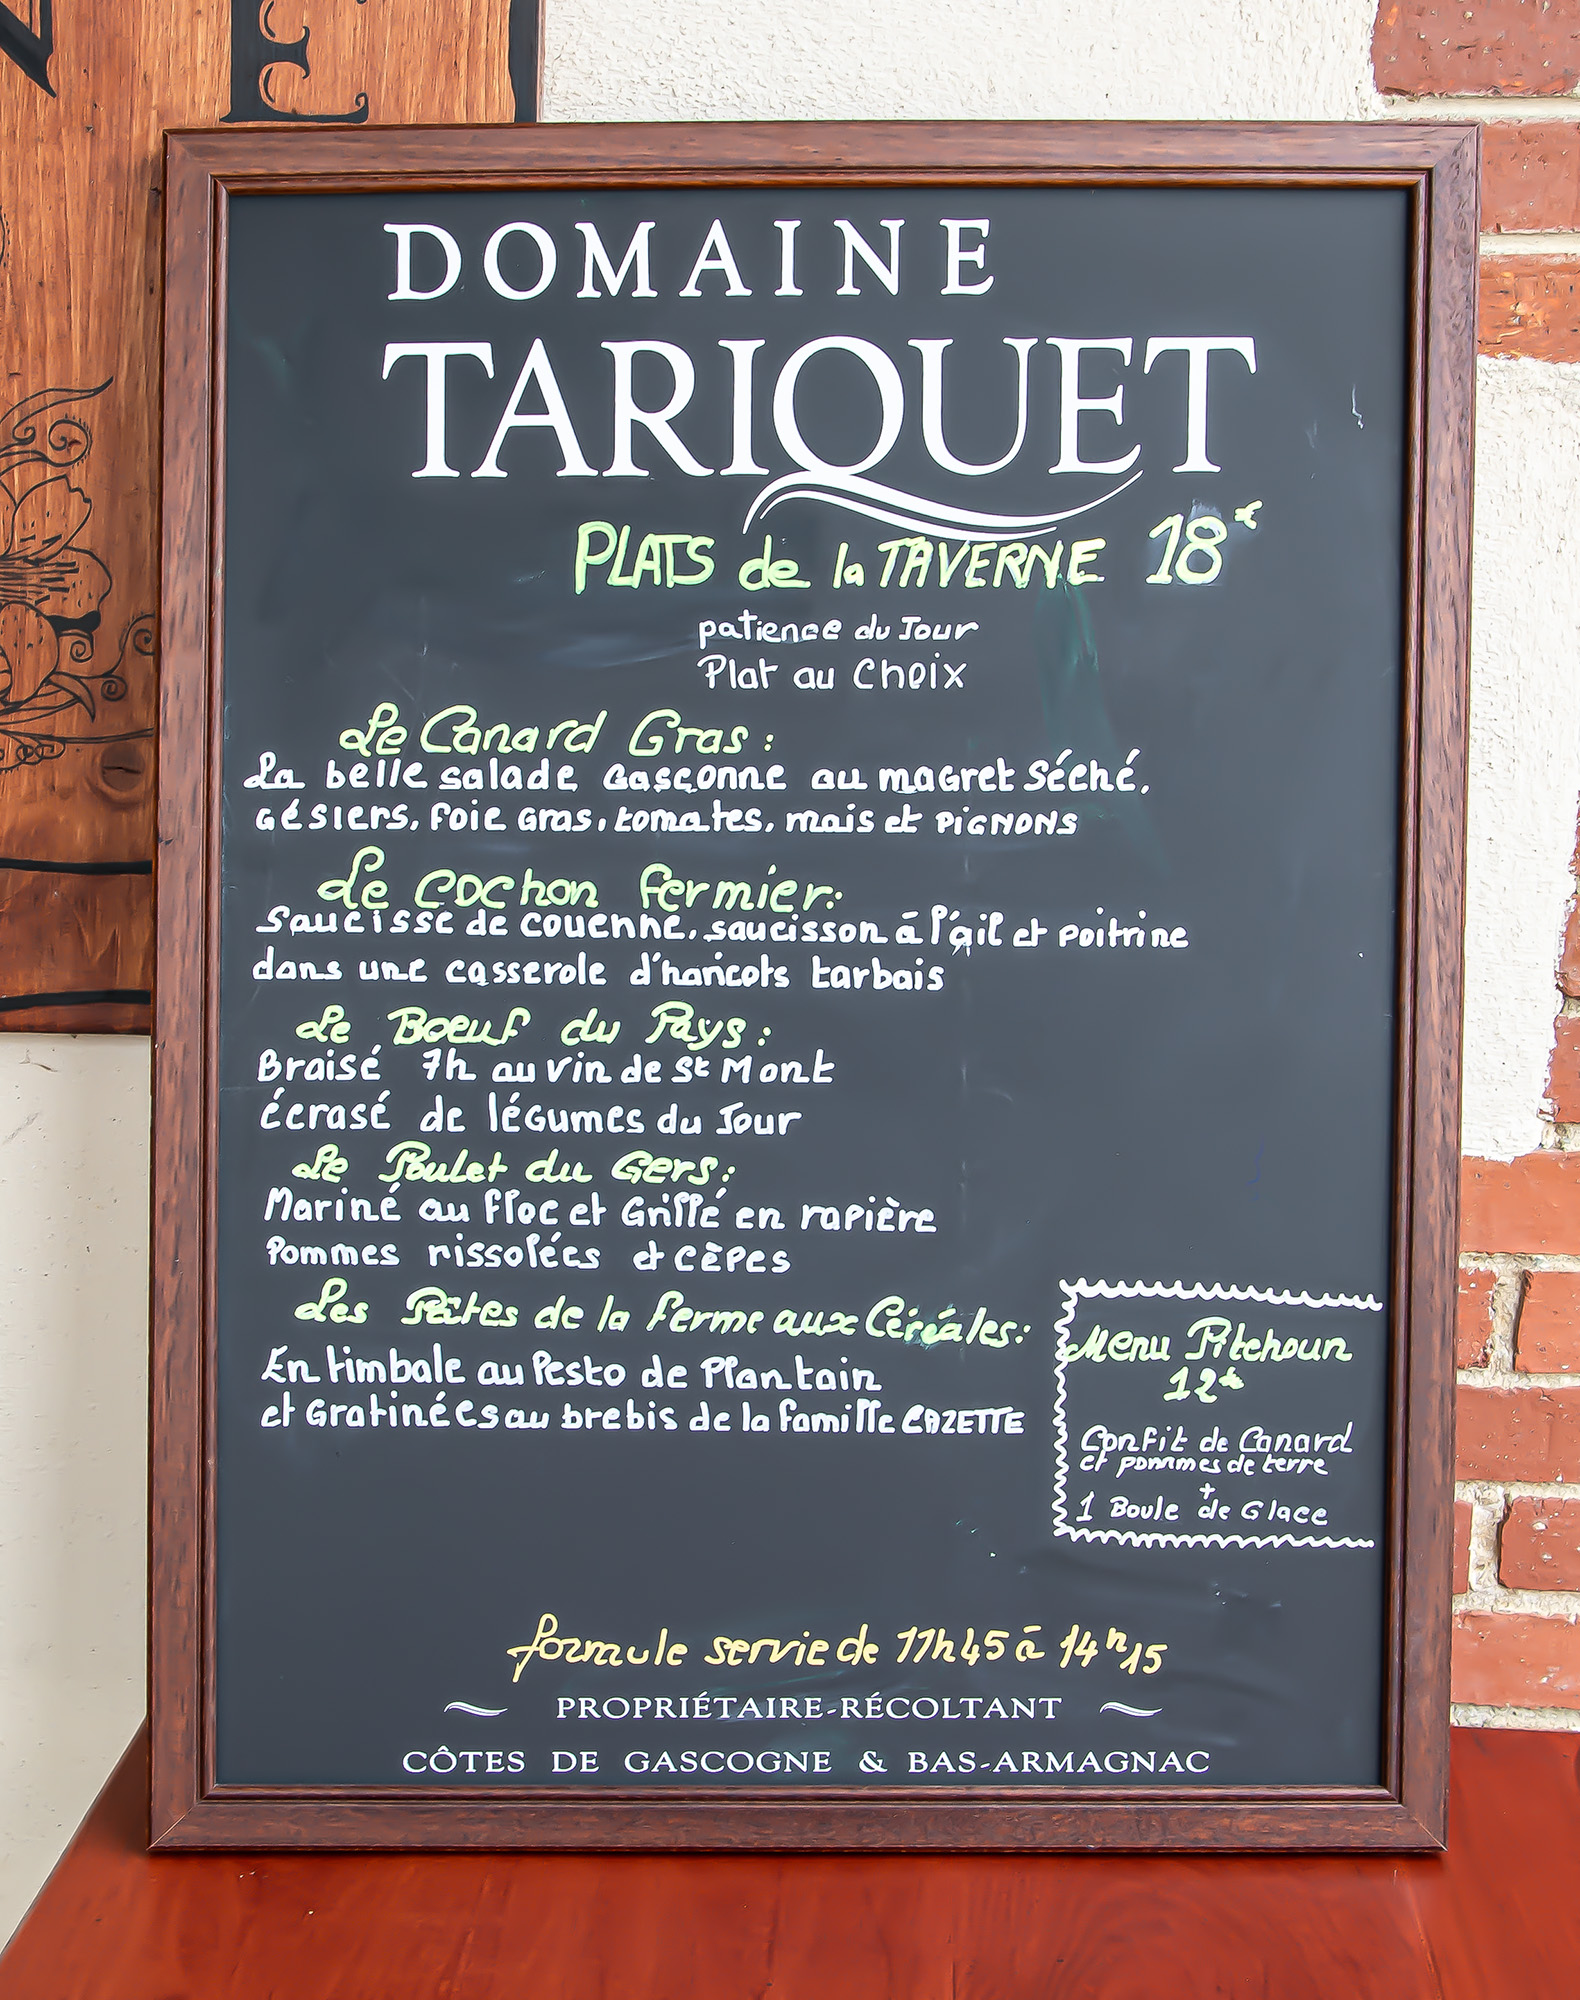 E
DOMAINE
TARIQUET
PLATS de la TAVERNE 18€
patience du Jour
Plat au Choix
Le Canard Gras :
La belle salade Gasçonne au magret Séché,
Gésiers, Foie Gras, tomates, mais et PIGNONS
Le Cochon fermier:
Saucisse de couenne, saucisson à l'ail et poitrine
dans une casserole d'haricots tarbais
Le Boeuf du Pays :
Braisé 7h au vin de St Mont
écrasé de légumes du Jour
Le Poulet du Gers :
Mariné au floc et Grillé en rapière
Pommes rissolées et cèpes
Les Pâtes de la ferme aux Céréales :
En timbale au Pesto de Plantain
et Gratinées au brebis de la famille CAZETTE
Menu Pitchoun
12€
Confit de Canard
et pommes de terre
+
1 Boule de Glace
formule servie de 11h45 à 14h15
PROPRIÉTAIRE-RÉCOLTANT
CÔTES DE GASCOGNE & BAS-ARMAGNAC